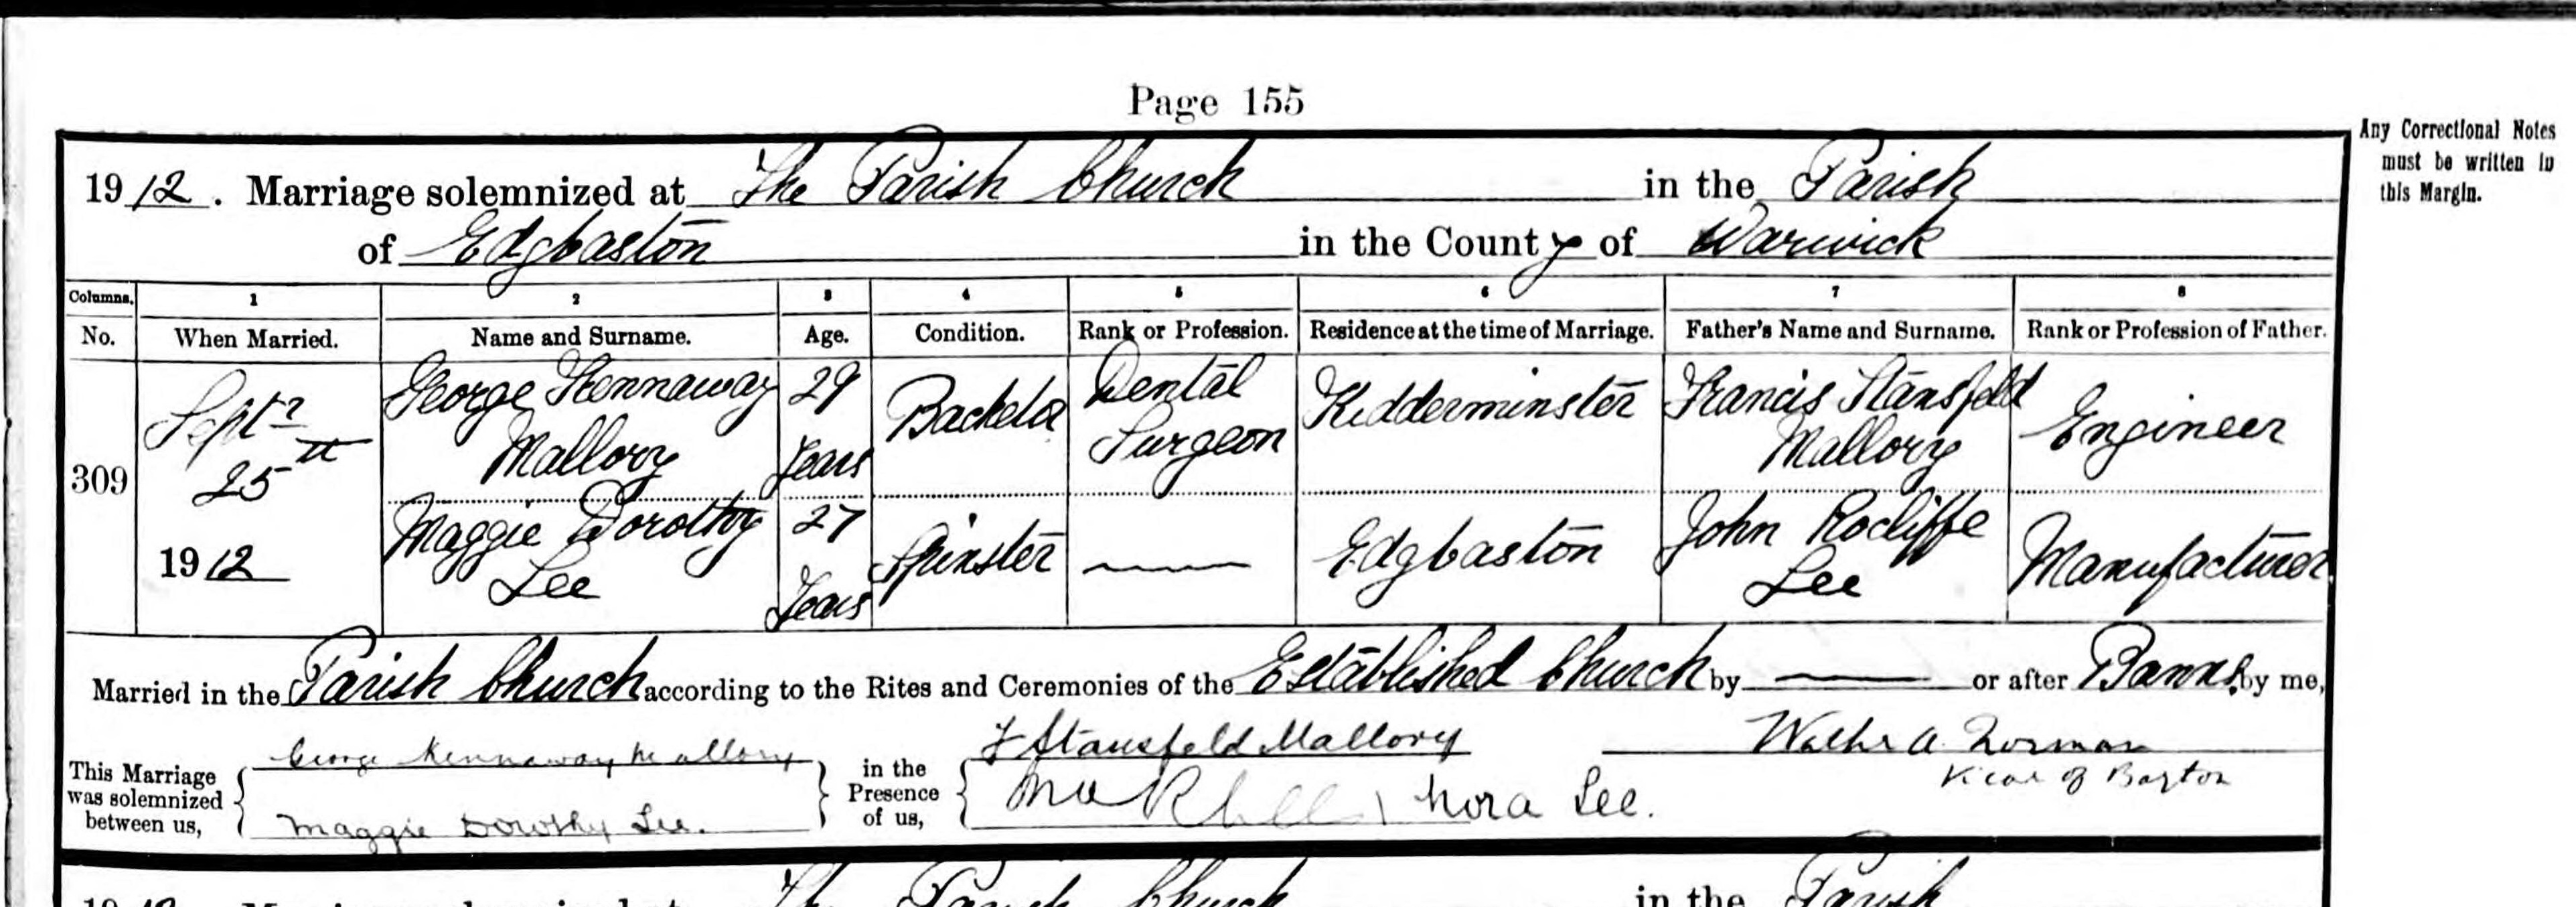 Page 155
Any Correctional Notes
must be written in
this Margin.
1912. Marriage solemnized at The Parish Church in the Parish
of Edgbaston in the County of Warwick
Columns. 1 2 3 4 5 6 7 8
No. When Married. Name and Surname. Age. Condition. Rank or Profession. Residence at the time of Marriage. Father's Name and Surname. Rank or Profession of Father.
309 Septr 25th 1912
George Kennaway Mallory 29 Years Bachelor Dental Surgeon Kidderminster Francis Stansfeld Mallory Engineer
Maggie Dorothy Lee 27 Years Spinster — Edgbaston John Rocliffe Lee Manufacturer
Married in the Parish Church according to the Rites and Ceremonies of the Established Church by — or after Banns by me,
This Marriage was solemnized between us, { George Kennaway Mallory } in the Presence of us, { F Stansfeld Mallory Walter A. Norman
Maggie Dorothy Lee. Nora Lee. Vicar of
1912 Marriage solemnized at The Parish Church in the Parish